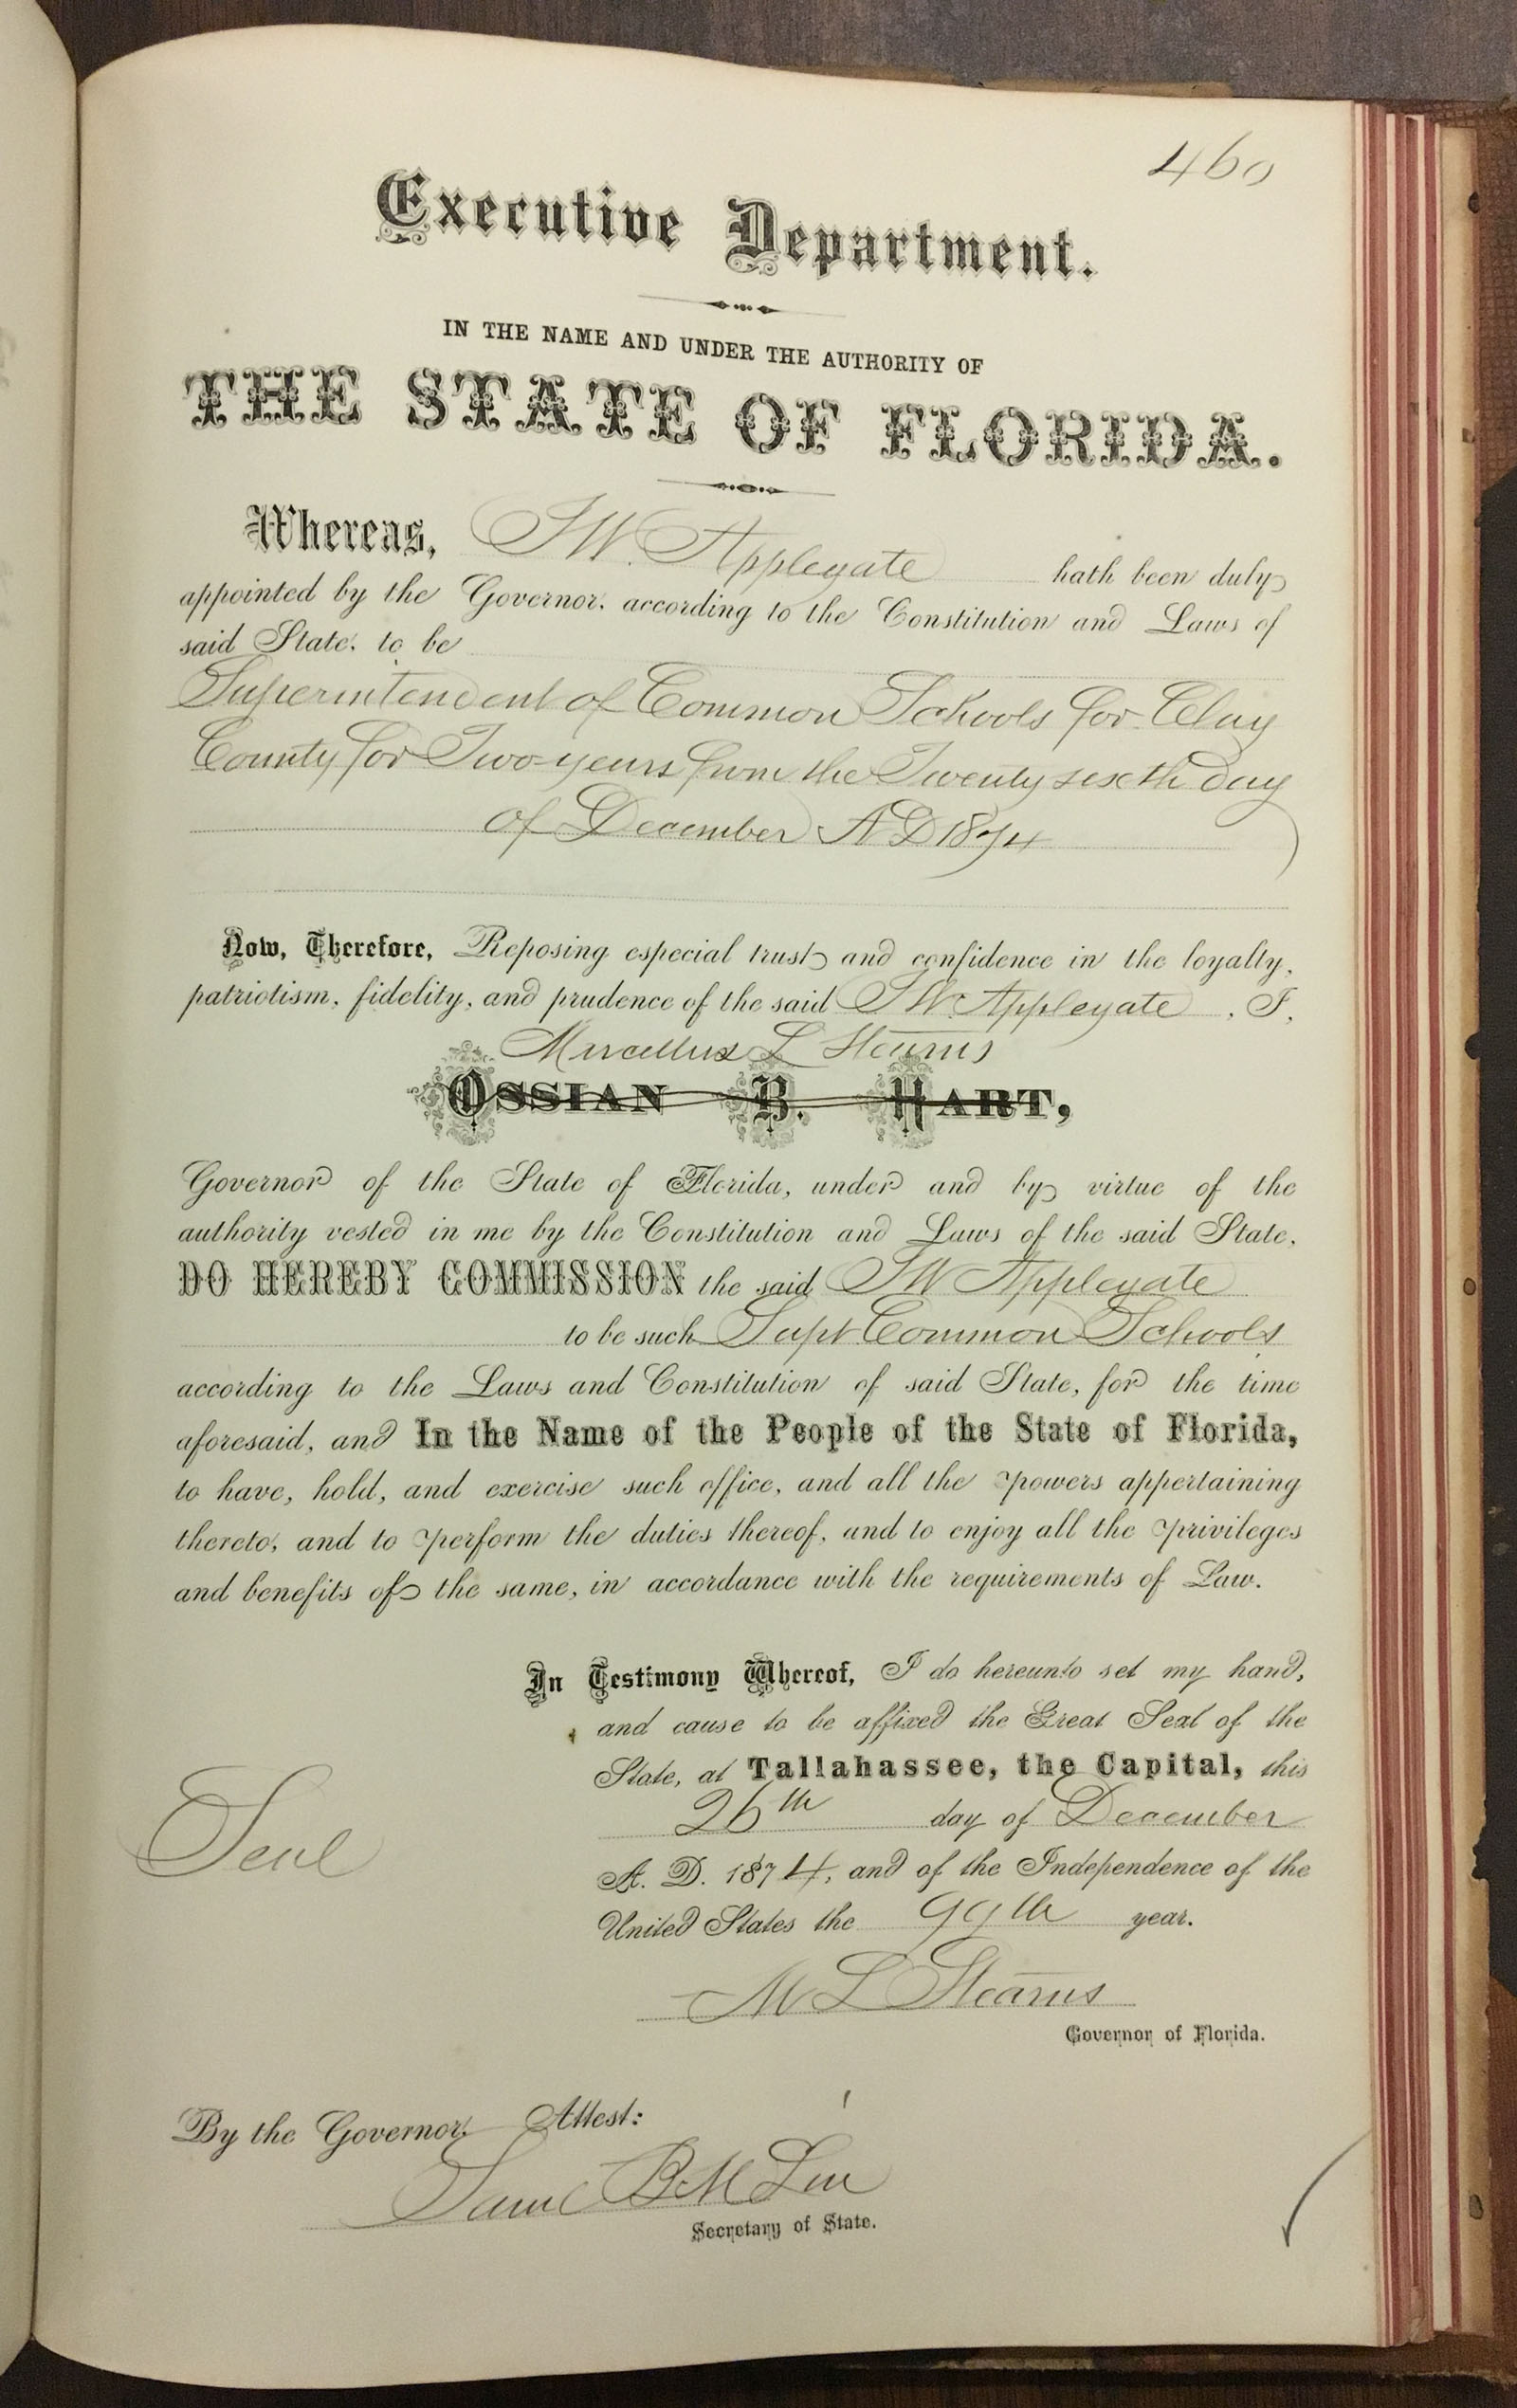 460
Executive Department.
IN THE NAME AND UNDER THE AUTHORITY OF
THE STATE OF FLORIDA.
Whereas, T W. Applegate hath been duly
appointed by the Governor, according to the Constitution and Laws of
said State, to be
Superintendent of Common Schools for Clay
County for Two years from the Twenty sixth day
of December A D 1874
Now, Therefore, Reposing especial trust and confidence in the loyalty,
patriotism, fidelity, and prudence of the said T W. Applegate, I,
Marcellus L Stearns
OSSIAN B. HART,
Governor of the State of Florida, under and by virtue of the
authority vested in me by the Constitution and Laws of the said State,
DO HEREBY COMMISSION the said T W Applegate
to be such Supt Common Schools
according to the Laws and Constitution of said State, for the time
aforesaid, and In the Name of the People of the State of Florida,
to have, hold, and exercise such office, and all the powers appertaining
thereto, and to perform the duties thereof, and to enjoy all the privileges
and benefits of the same, in accordance with the requirements of Law.
In Testimony Whereof, I do hereunto set my hand,
and cause to be affixed the Great Seal of the
State, at Tallahassee, the Capital, this
26th day of December
A. D. 1874, and of the Independence of the
United States the 99th year.
Seal
M L Stearns
Governor of Florida.
By the Governor, Attest:
Saml B McLin
Secretary of State.